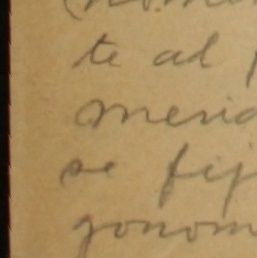 te al
merid
se fij
gonom